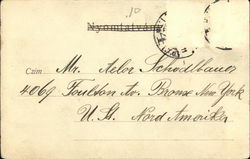 10
Nyomtatvány
Czim Mr. Aelor Schödlbauer
4069 Foulton Av. Bronx New York
U. St. Nord Amerika